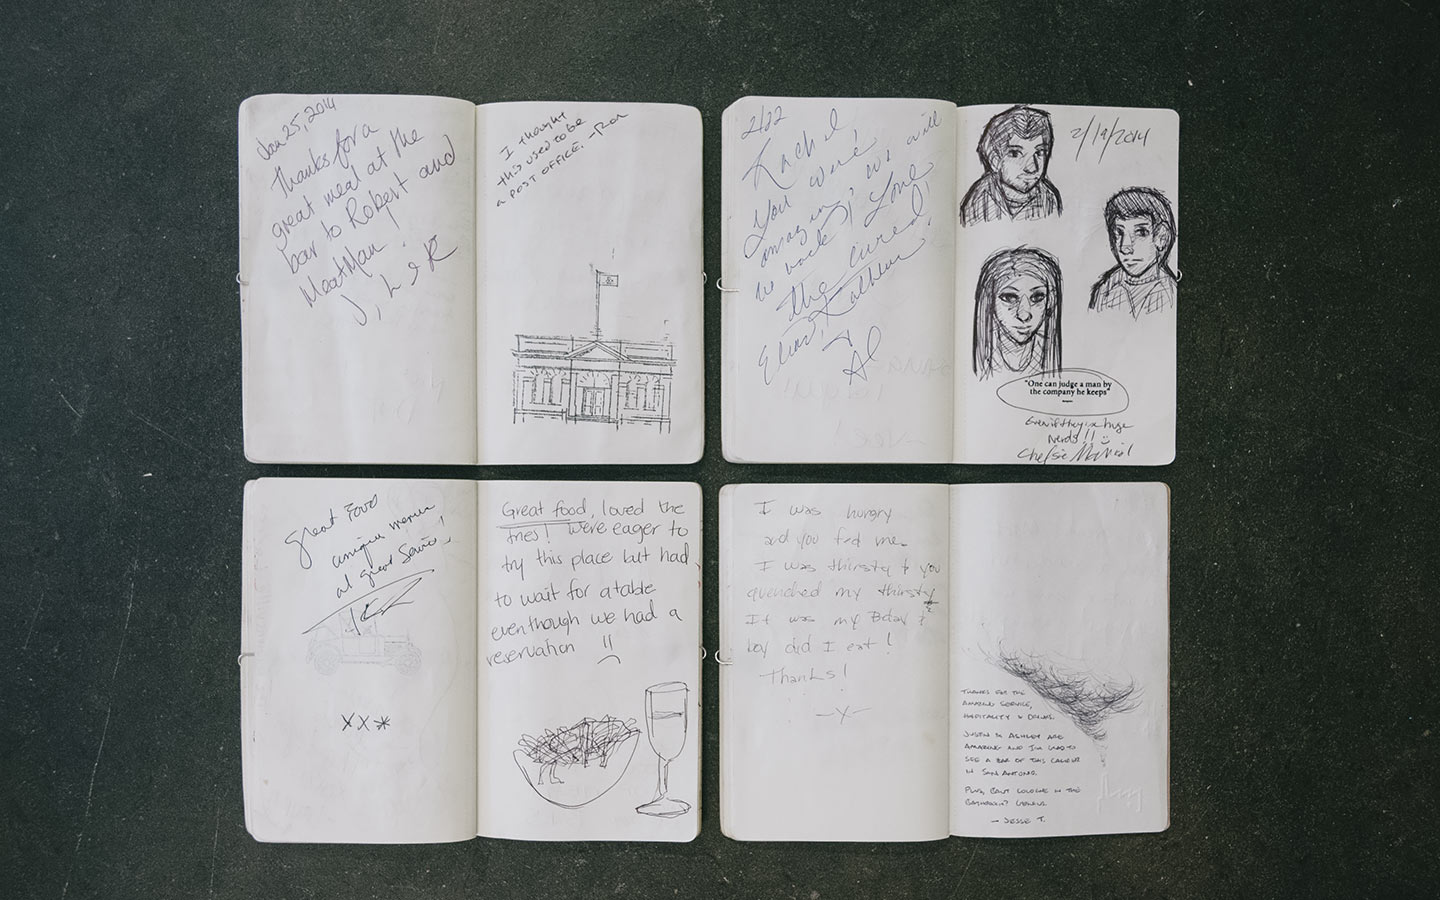 Jan 25, 2014
Thanks for a
great meal at the
bar to Robert and
MeatMan!
J, L & R
I thought
this used to be
a POST OFFICE. -Ron
2/22
Rachel
You were
amazing! we will
be back! Love
the cured!
Al
2/19/2014
"One can judge a man by
the company he keeps"
Even if they're huge
nerds!!
Great Food
unique menu
at great Service!
XX*
Great food, loved the
fries! Were eager to
try this place but had
to wait for a table
even though we had a
reservation !!
I was hungry
and you fed me.
I was thirsty & you
quenched my thirsty
It was my Bday &
boy did I eat!
Thanks!
-X-
THANKS FOR THE
AMAZING SERVICE,
HOSPITALITY & DRINKS.
JUSTIN & ASHLEY ARE
AMAZING AND I'M GLAD TO
SEE A BAR OF THIS CALIBER
IN SAN ANTONIO.
PLUS, BAY COLOGNE IN THE
BATHROOM? GENIUS.
- JESSE T.